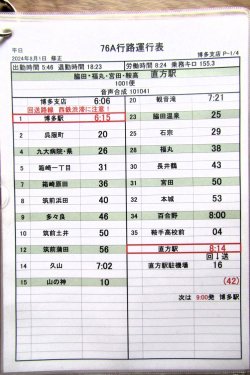 平日
76A行路運行表
2024年8月1日 修正
博多支店 P-1/4
出勤時間 5:46 退勤時間 18:23 労働時間 8:24 乗務キロ 155.3
脇田・福丸・宮田・鞍高 直方駅
1001便
音声合成 101041
博多支店 6:06
回送路線 西鉄渋滞に注意!
1 博多駅 6:15
2 呉服町 20
4 九大病院・県 26
5 箱崎一丁目 31
7 箱崎原田 36
8 筑前浜田 40
9 多々良 46
10 筑前土井 50
12 筑前蒲田 56
14 久山 7:02
15 山の神 10
20 観音滝 7:21
23 脇田温泉 25
25 石原 29
28 福丸 38
30 長井鶴 43
31 宮田 50
32 本城 53
34 百合野 8:00
35 鞍手高校前 04
直方駅 8:14
回↓送
直方駐機場 16
(42)
次は 9:00発 博多駅